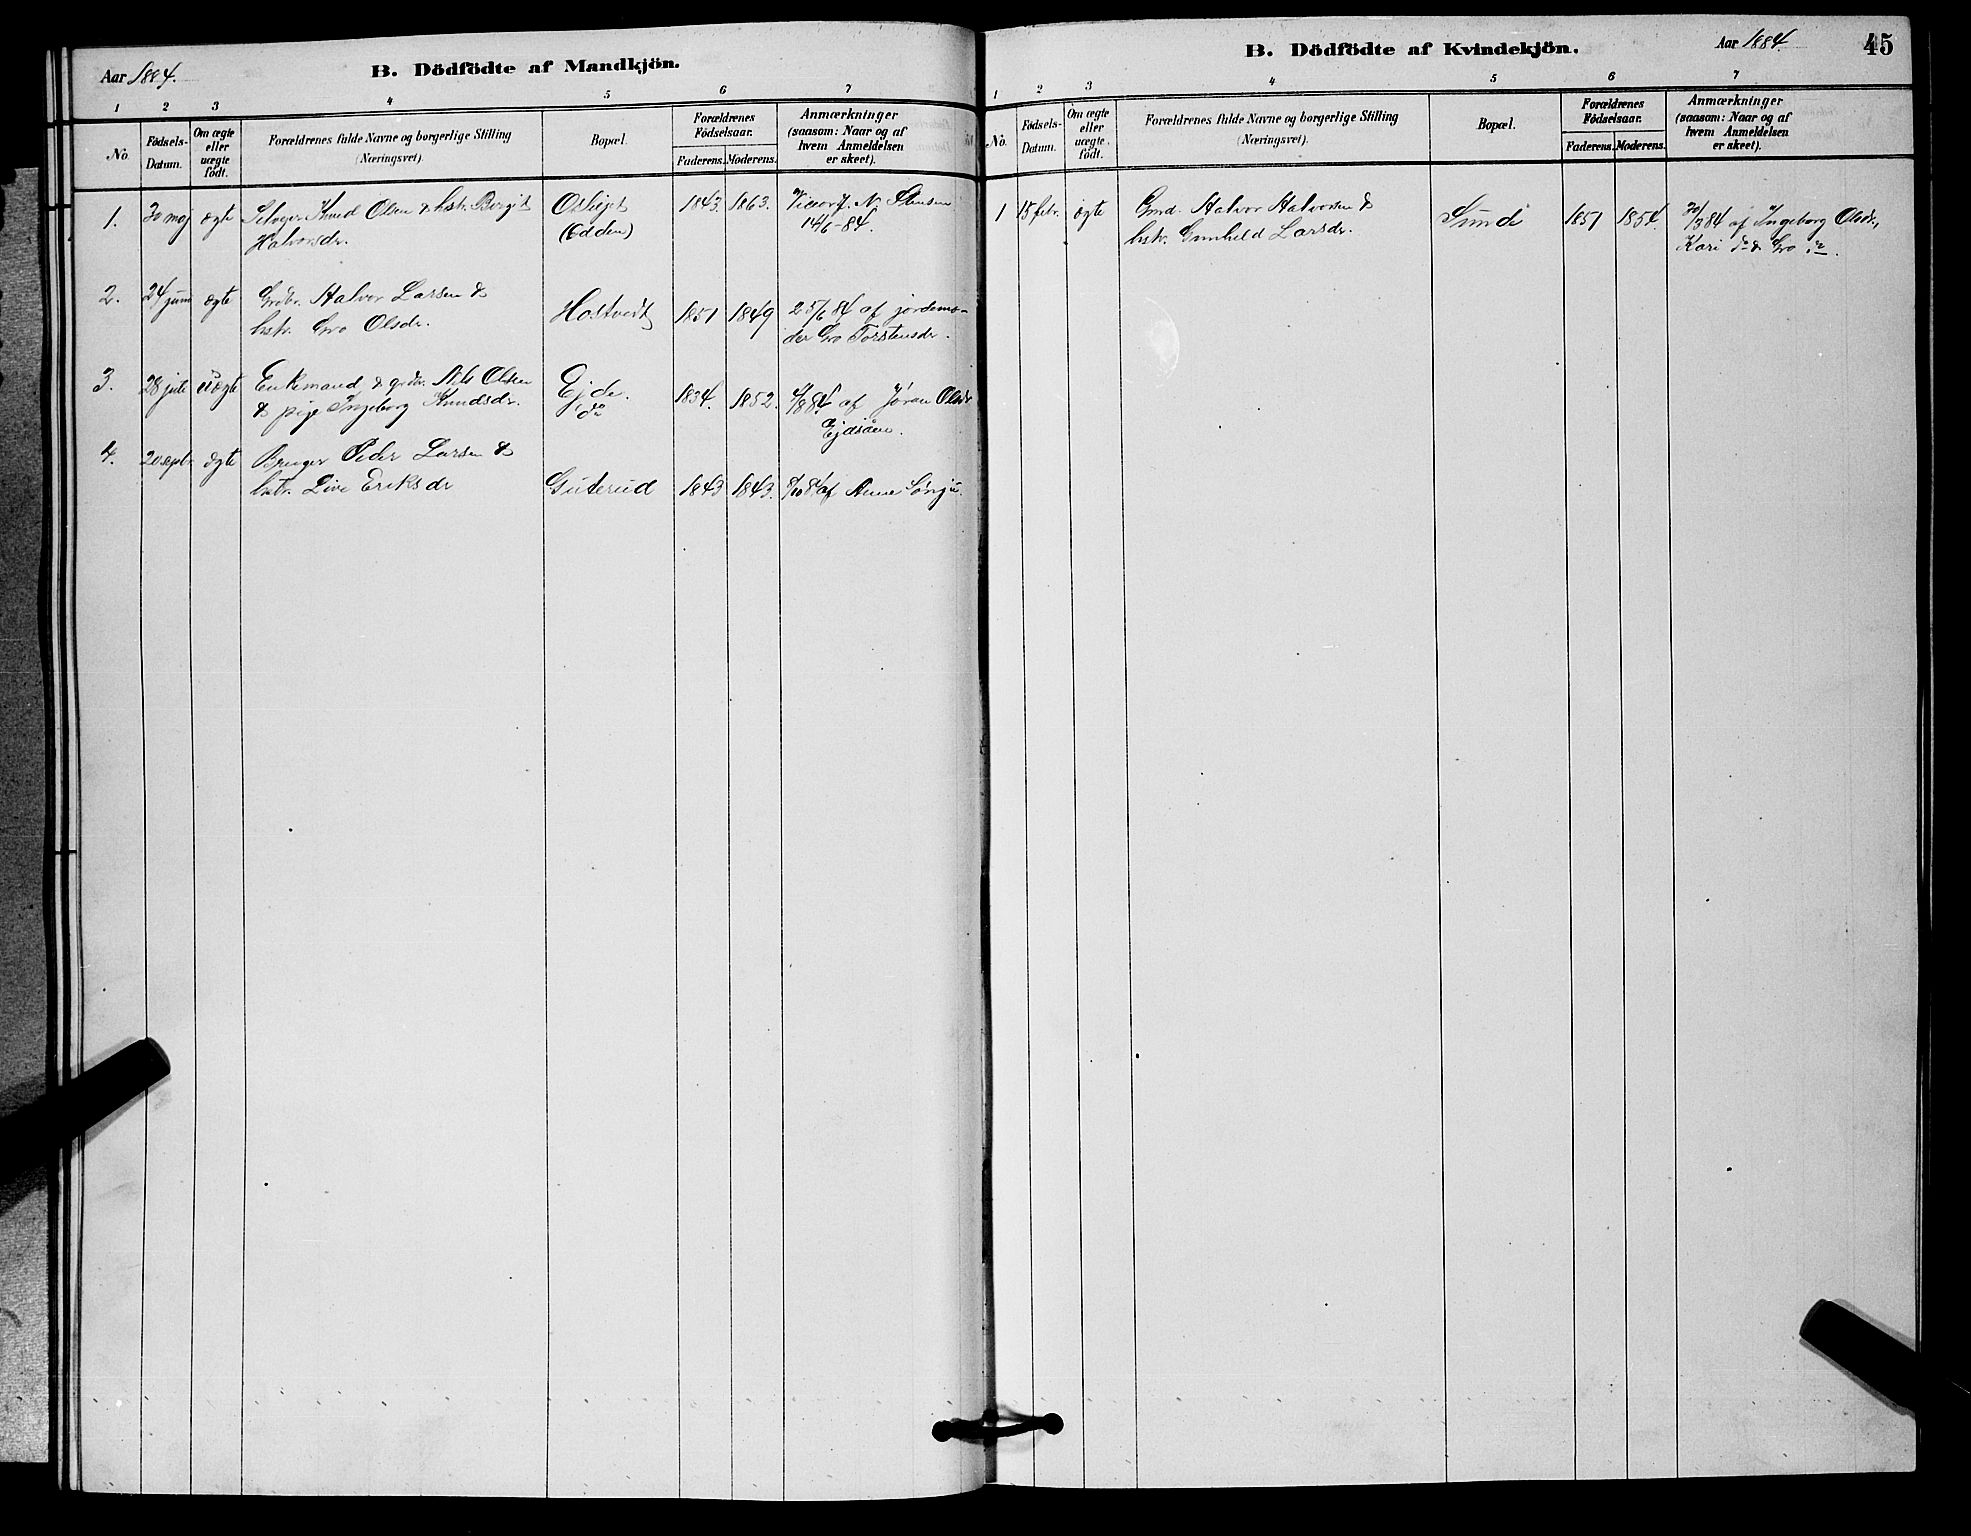 Aar 1884.
B. Dödfödte af Mandkjön.
1 2 3 4 5 6 7
No.
Födsels-
Datum.
Om ægte
eller
uægte
födt.
Forældrenes fulde Navne og borgerlige Stilling
(Næringsvei).
Bopæl.
Forældrenes
Födselsaar.
Faderens. Moderens.
Anmærkninger
(saasom: Naar og af
hvem Anmeldelsen
er skeet).
1. 30 maj ægte Selvejer Knud Olsen & hstr. Bergit
Halvorsdr.
(Edden)
1843. 1863.
14/6-84.
2. 24 juni ægte Grdbr. Halvor Larsen &
hstr. Gro Olsdr.
Hostvedt 1851 1849 25/6 84 af jordemo-
der Gro Torstensdr.
3. 28 juli uægte Enkemand & grdbr. Nils Olsen
& pige Ingeborg Knudsdr.
Ejde.
do
1834. 1852. 4/8 84 af Jøran Olsdr
Ejdsåen.
4. 20 septr. ægte Bruger Peder Larsen &
hstr. Live Eriksdr
Guterud 1843 1843. af Anne
B. Dödfödte af Kvindekjön.
Aar 1884. 45
1 2 3 4 5 6 7
No.
Födsels-
Datum.
Om ægte
eller
uægte
födt.
Forældrenes fulde Navne og borgerlige Stilling
(Næringsvei).
Bopæl.
Forældrenes
Födselsaar.
Faderens. Moderens.
Anmærkninger
(saasom: Naar og af
hvem Anmeldelsen
er skeet).
1 15 febr. ægte Gmd. Halvor Halvorsen &
hstr. Gunhild Larsdr.
Sundi 1851 1854. 20/3 84 af Ingeborg Olsdr.,
Kari do & Gro do.